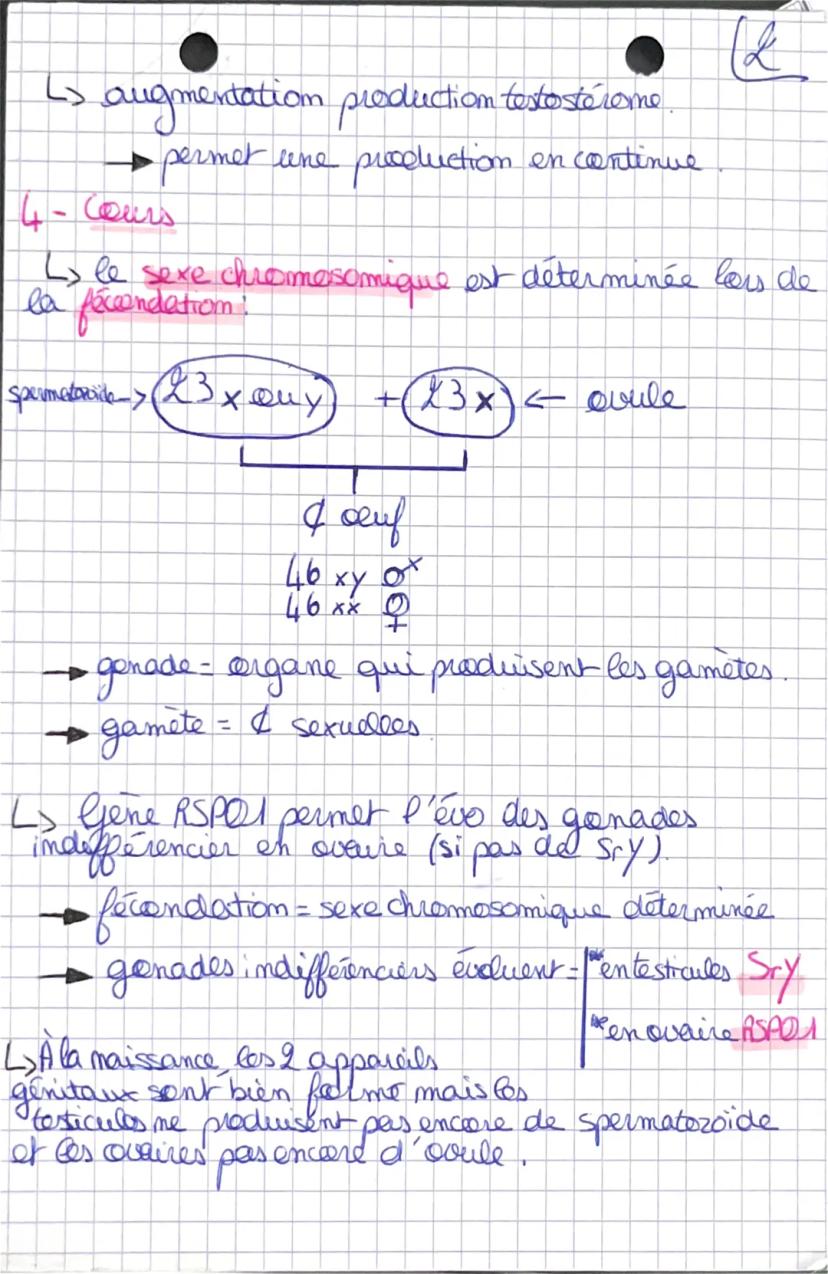 2
↳ augmentation production testostérone.
→ permet une production en continue.
4 - Cours
↳ le sexe chromosomique est déterminée lors de
la fécondation :
spermatozoïde → 23 x ou y + 23 x ← ovule
¢ oeuf
46 xy ♂
46 xx ♀
→ gonade = organe qui produisent les gamètes.
→ gamète = ¢ sexuelles.
↳ Gène RSPO1 permet l'évo des gonades
indifférencier en ovaire (si pas de Sry).
→ fécondation = sexe chromosomique déterminée
→ gonades indifférenciers évoluent = * en testicules Sry
* en ovaire RSPO1
↳ À la naissance, les 2 appareils
génitaux sont bien formé mais les
testicules ne produisent pas encore de spermatozoïde
et les ovaires pas encore d'ovule.